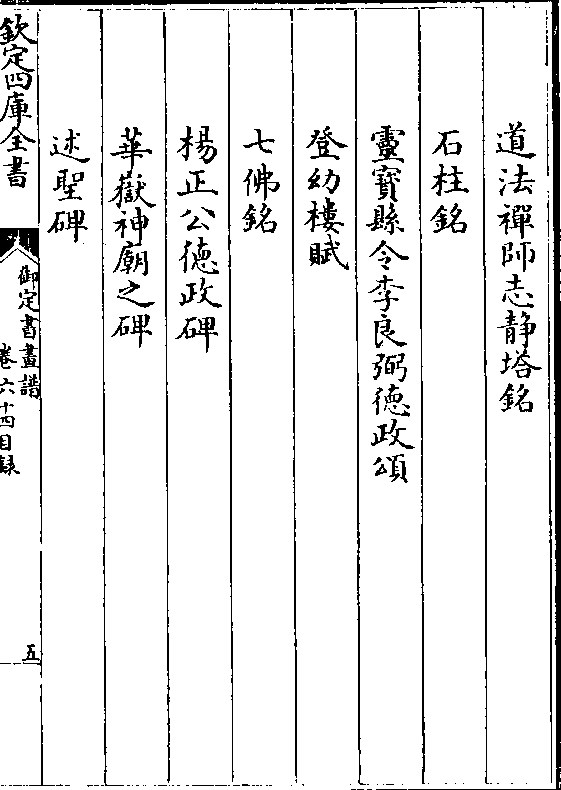 道法禪師志靜塔銘
石柱銘
靈寶縣令李良弼德政頌
登幼樓賦
七佛銘
楊正公德政碑
華嶽神廟之碑
述聖碑
欽定四庫全書
御定書畫譜
卷六十四目錄
五